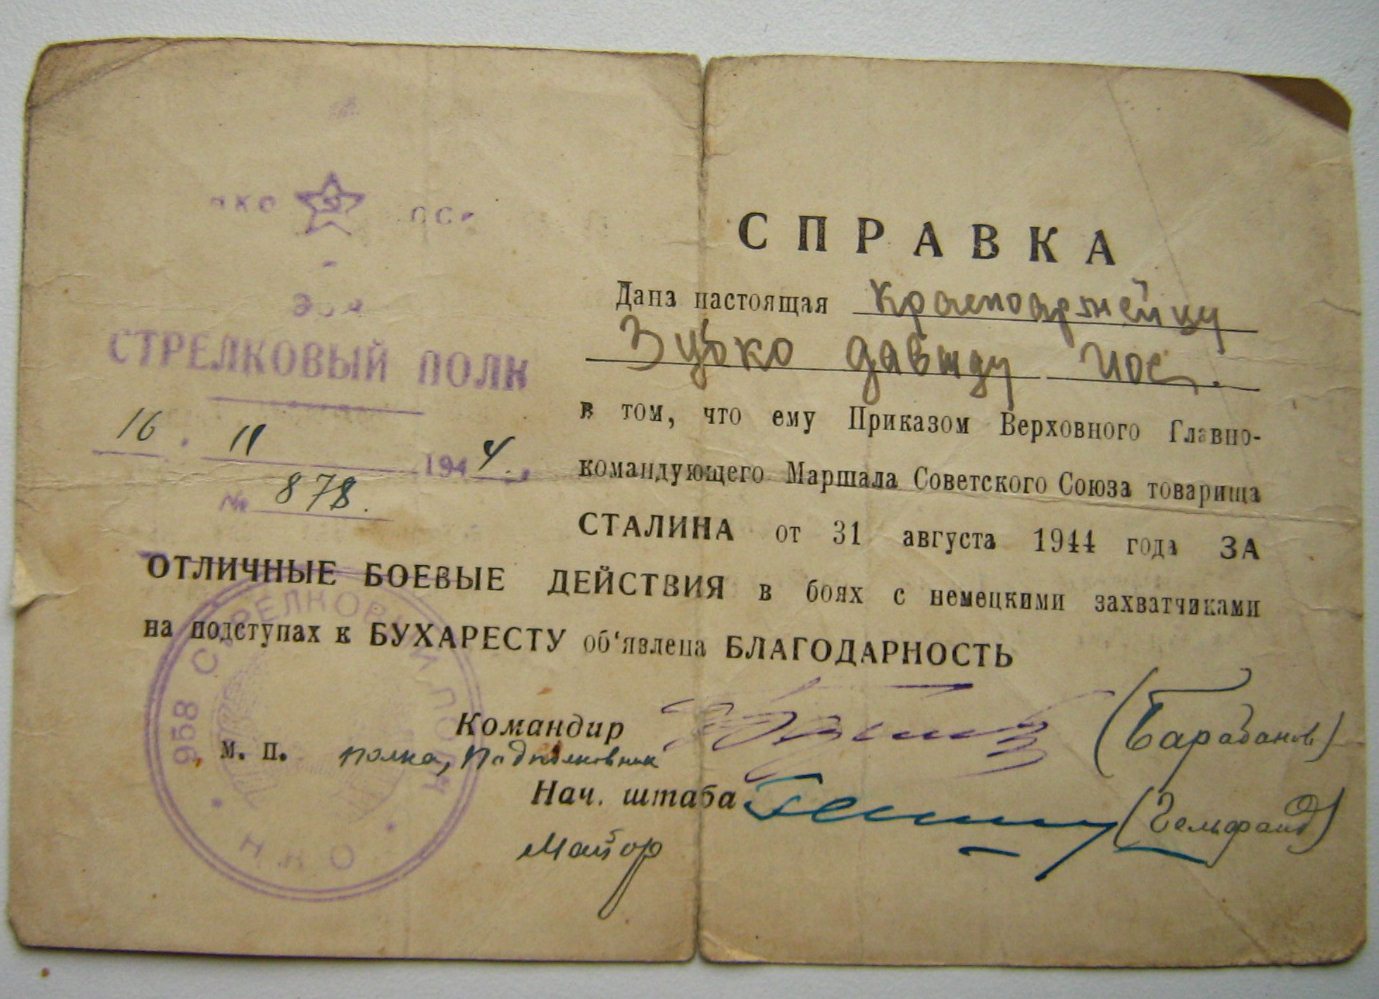 СТРЕЛКОВЫЙ ПОЛК
16. 11 1944.
№ 878.
СПРАВКА
Дана настоящая Красноармейцу
Зубко Давиду Иос.
в том, что ему Приказом Верховного Главно-
командующего Маршала Советского Союза товарища
СТАЛИНА от 31 августа 1944 года ЗА
ОТЛИЧНЫЕ БОЕВЫЕ ДЕЙСТВИЯ в боях с немецкими захватчиками
на подступах к БУХАРЕСТУ об'явлена БЛАГОДАРНОСТЬ
Командир (Барабанов)
М. П. полка, Подполковник
Нач. штаба (Гельфанд)
Майор
958 СТРЕЛКОВЫЙ ПОЛК
НКО